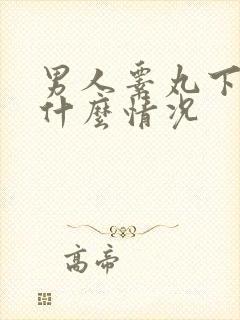 男人睾丸下
什麼情况
高帝